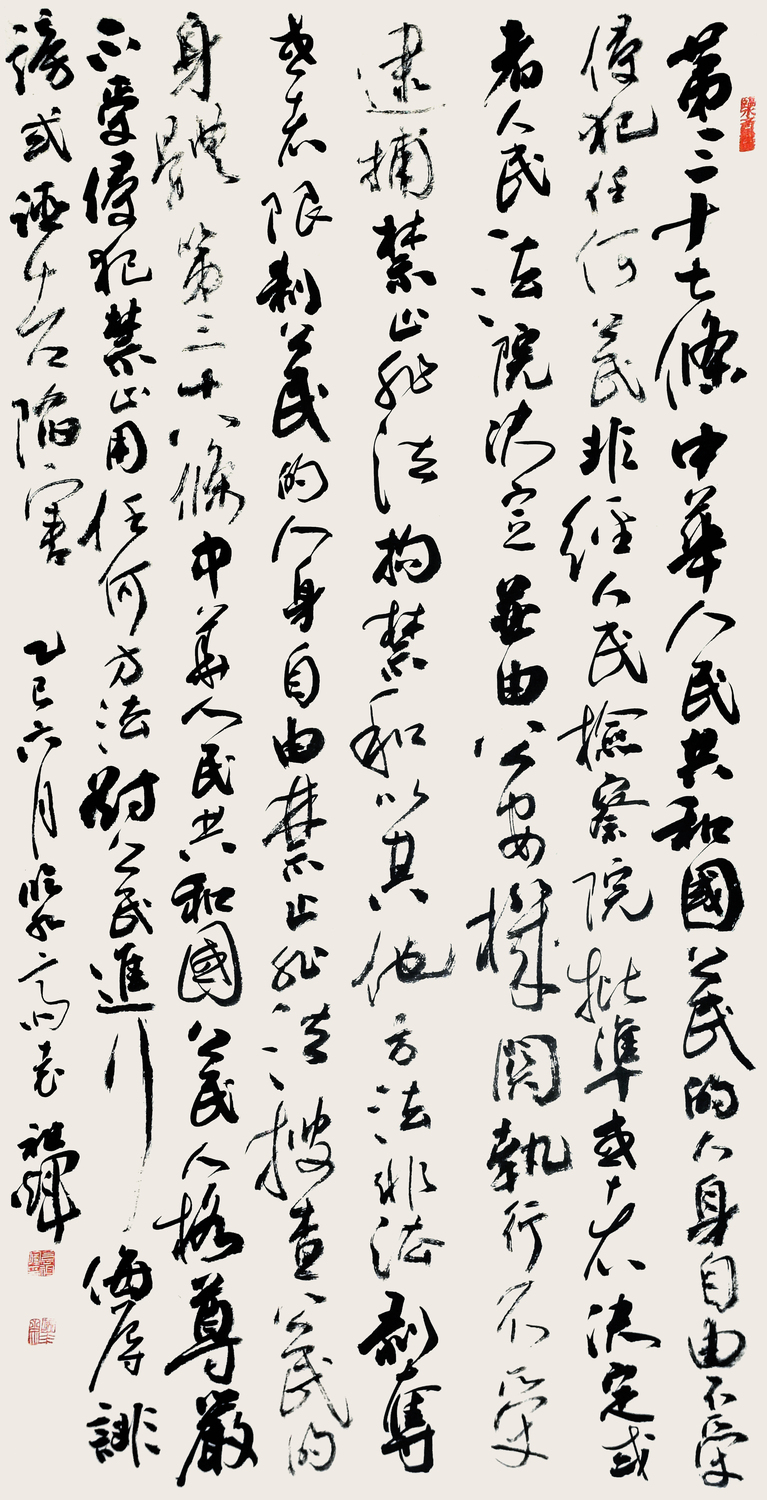 第三十七條中華人民共和國公民的人身自由不受
侵犯任何公民非經人民檢察院批準或者決定或
者人民法院決定並由公安機關執行不受
逮捕禁止非法拘禁和以其他方法非法剝奪
或者限制公民的人身自由禁止非法搜查公民的
身體第三十八條中華人民共和國公民人格尊嚴
不受侵犯禁止用任何方法對公民進行侮辱誹
謗或誣告陷害 乙巳六月